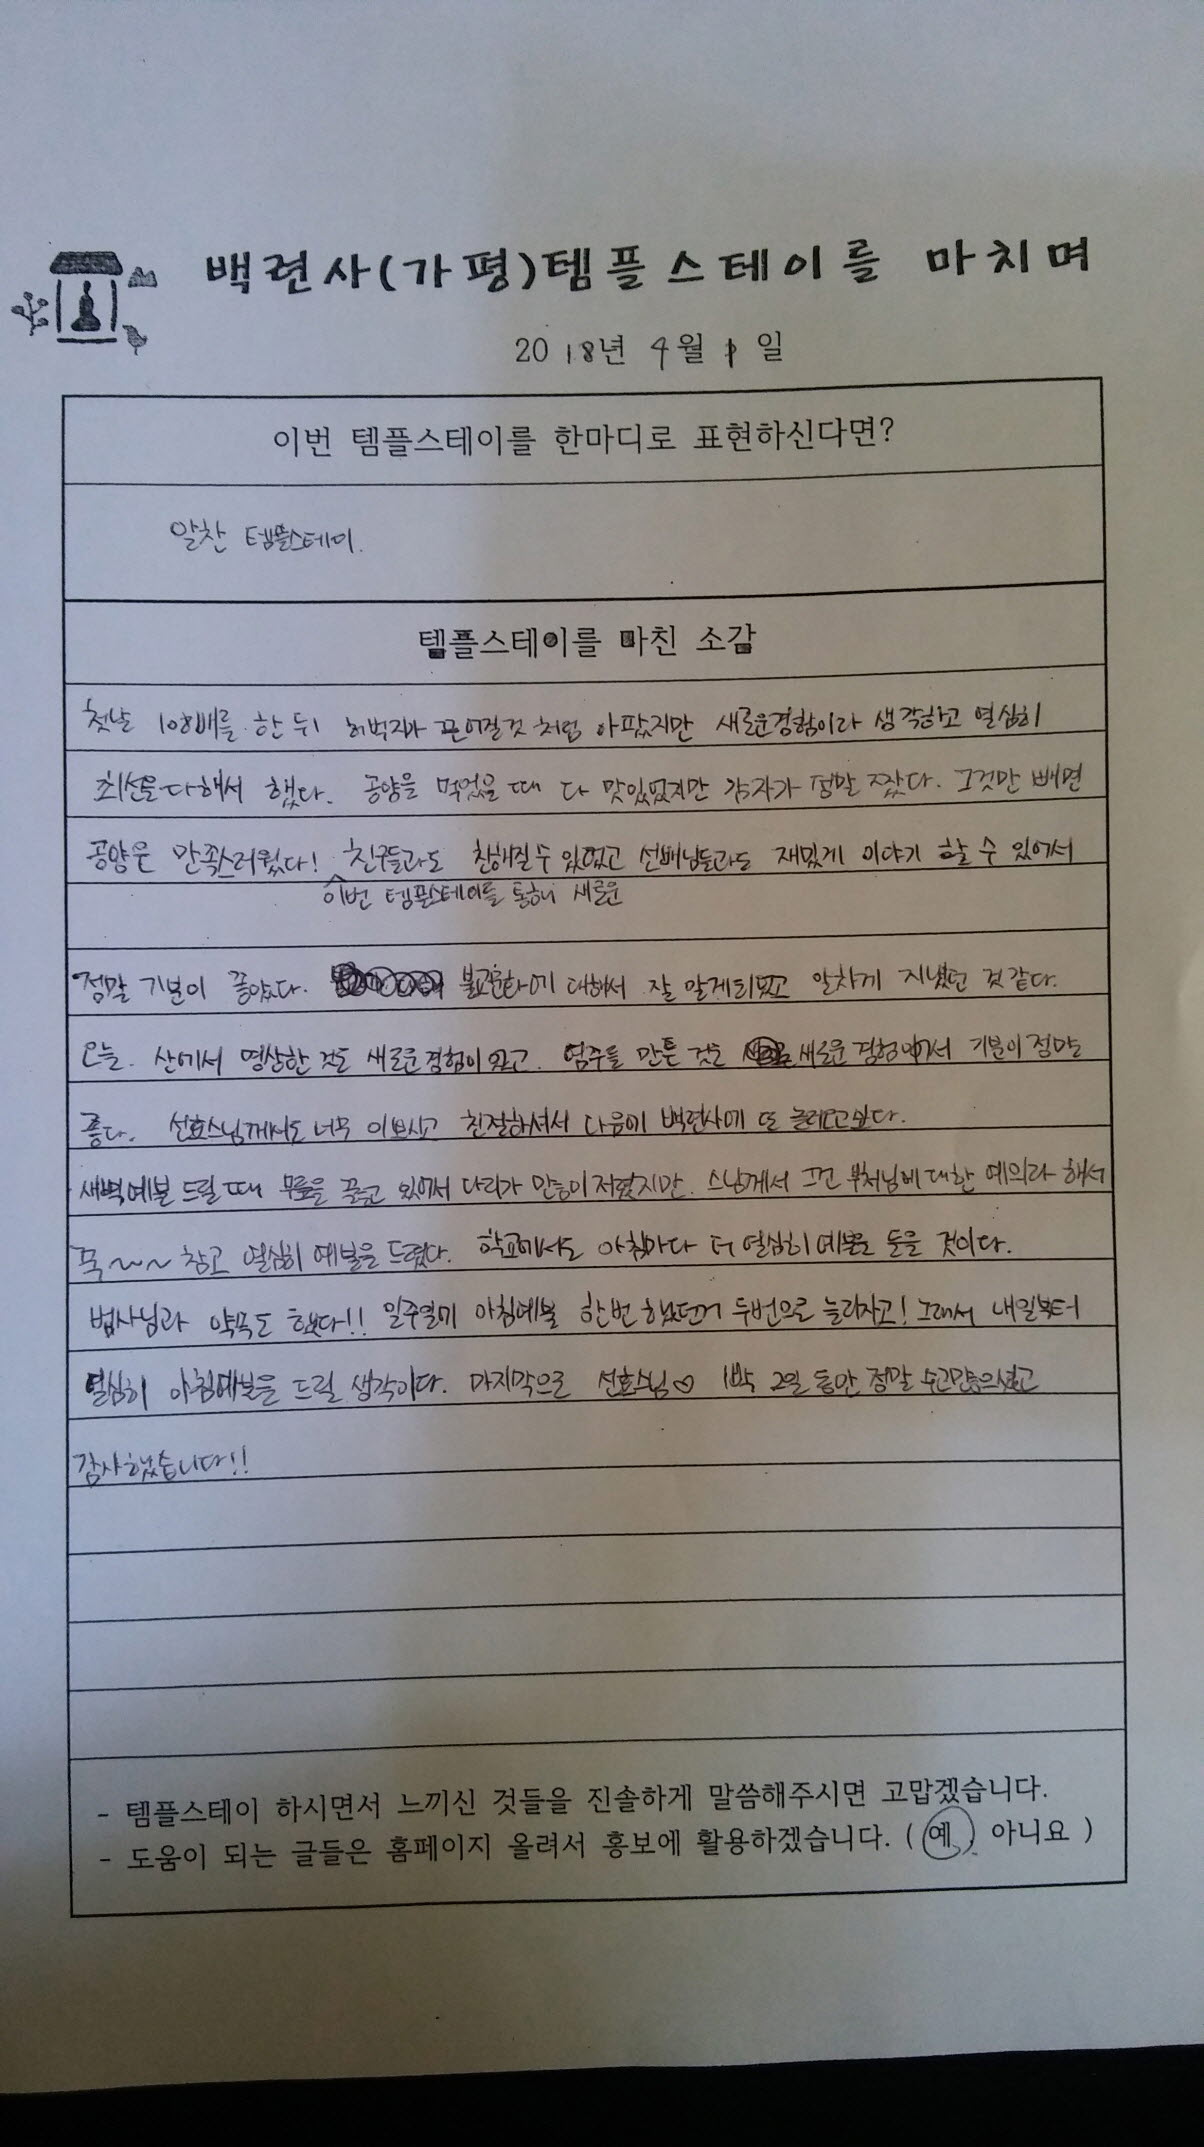 백련사(가평)템플스테이를 마치며
2018년 4월 1일
이번 템플스테이를 한마디로 표현하신다면?
알찬 템플스테이.
템플스테이를 마친 소감
첫날 108배를 한 뒤 허벅지가 끈어질것 처럼 아팠지만 새로운경험이라 생각하고 열심히
최선을다해서 했다. 공양을 먹었을 때 다 맛있었지만 감자가 정말 짰다. 그것만 빼면
공양은 만족스러웠다! 친구들과도 친해질수 있었고 선배님들과도 재밌게 이야기 할 수 있어서
이번 템플스테이를 통해 새로운
정말 기분이 좋았다. 불교문화에 대해서 잘 알게되었고 알차게 지냈던 것같다.
오늘. 산에서 명상한 것도 새로운경험이었고. 염주를 만든 것도 새로운 경험이여서 기분이 정말
좋다. 선효스님께서도 너무 이쁘시고 친절하셔서 다음에 백련사에 또 놀러오고싶다.
새벽예불 드릴 때 무릎을 꿇고 있어서 다리가 많이 저렸지만. 스님께서 부처님에 대한 예의라 해서
꾹~~ 참고 열심히 예불을 드렸다. 학교에서도 아침마다 더 열심히 예불을 들을 것이다.
법사님과 약속도 했다!! 일주일에 아침예불 한번 했던거 두번으로 늘리자고! 그래서 내일부터
열심히 아침예불을 드릴 생각이다. 마지막으로 선효스님♡ 1박 2일 동안 정말 수고많으셨고
감사했습니다!!
- 템플스테이 하시면서 느끼신 것들을 진솔하게 말씀해주시면 고맙겠습니다.
- 도움이 되는 글들은 홈페이지 올려서 홍보에 활용하겠습니다. ( 예 , 아니요 )